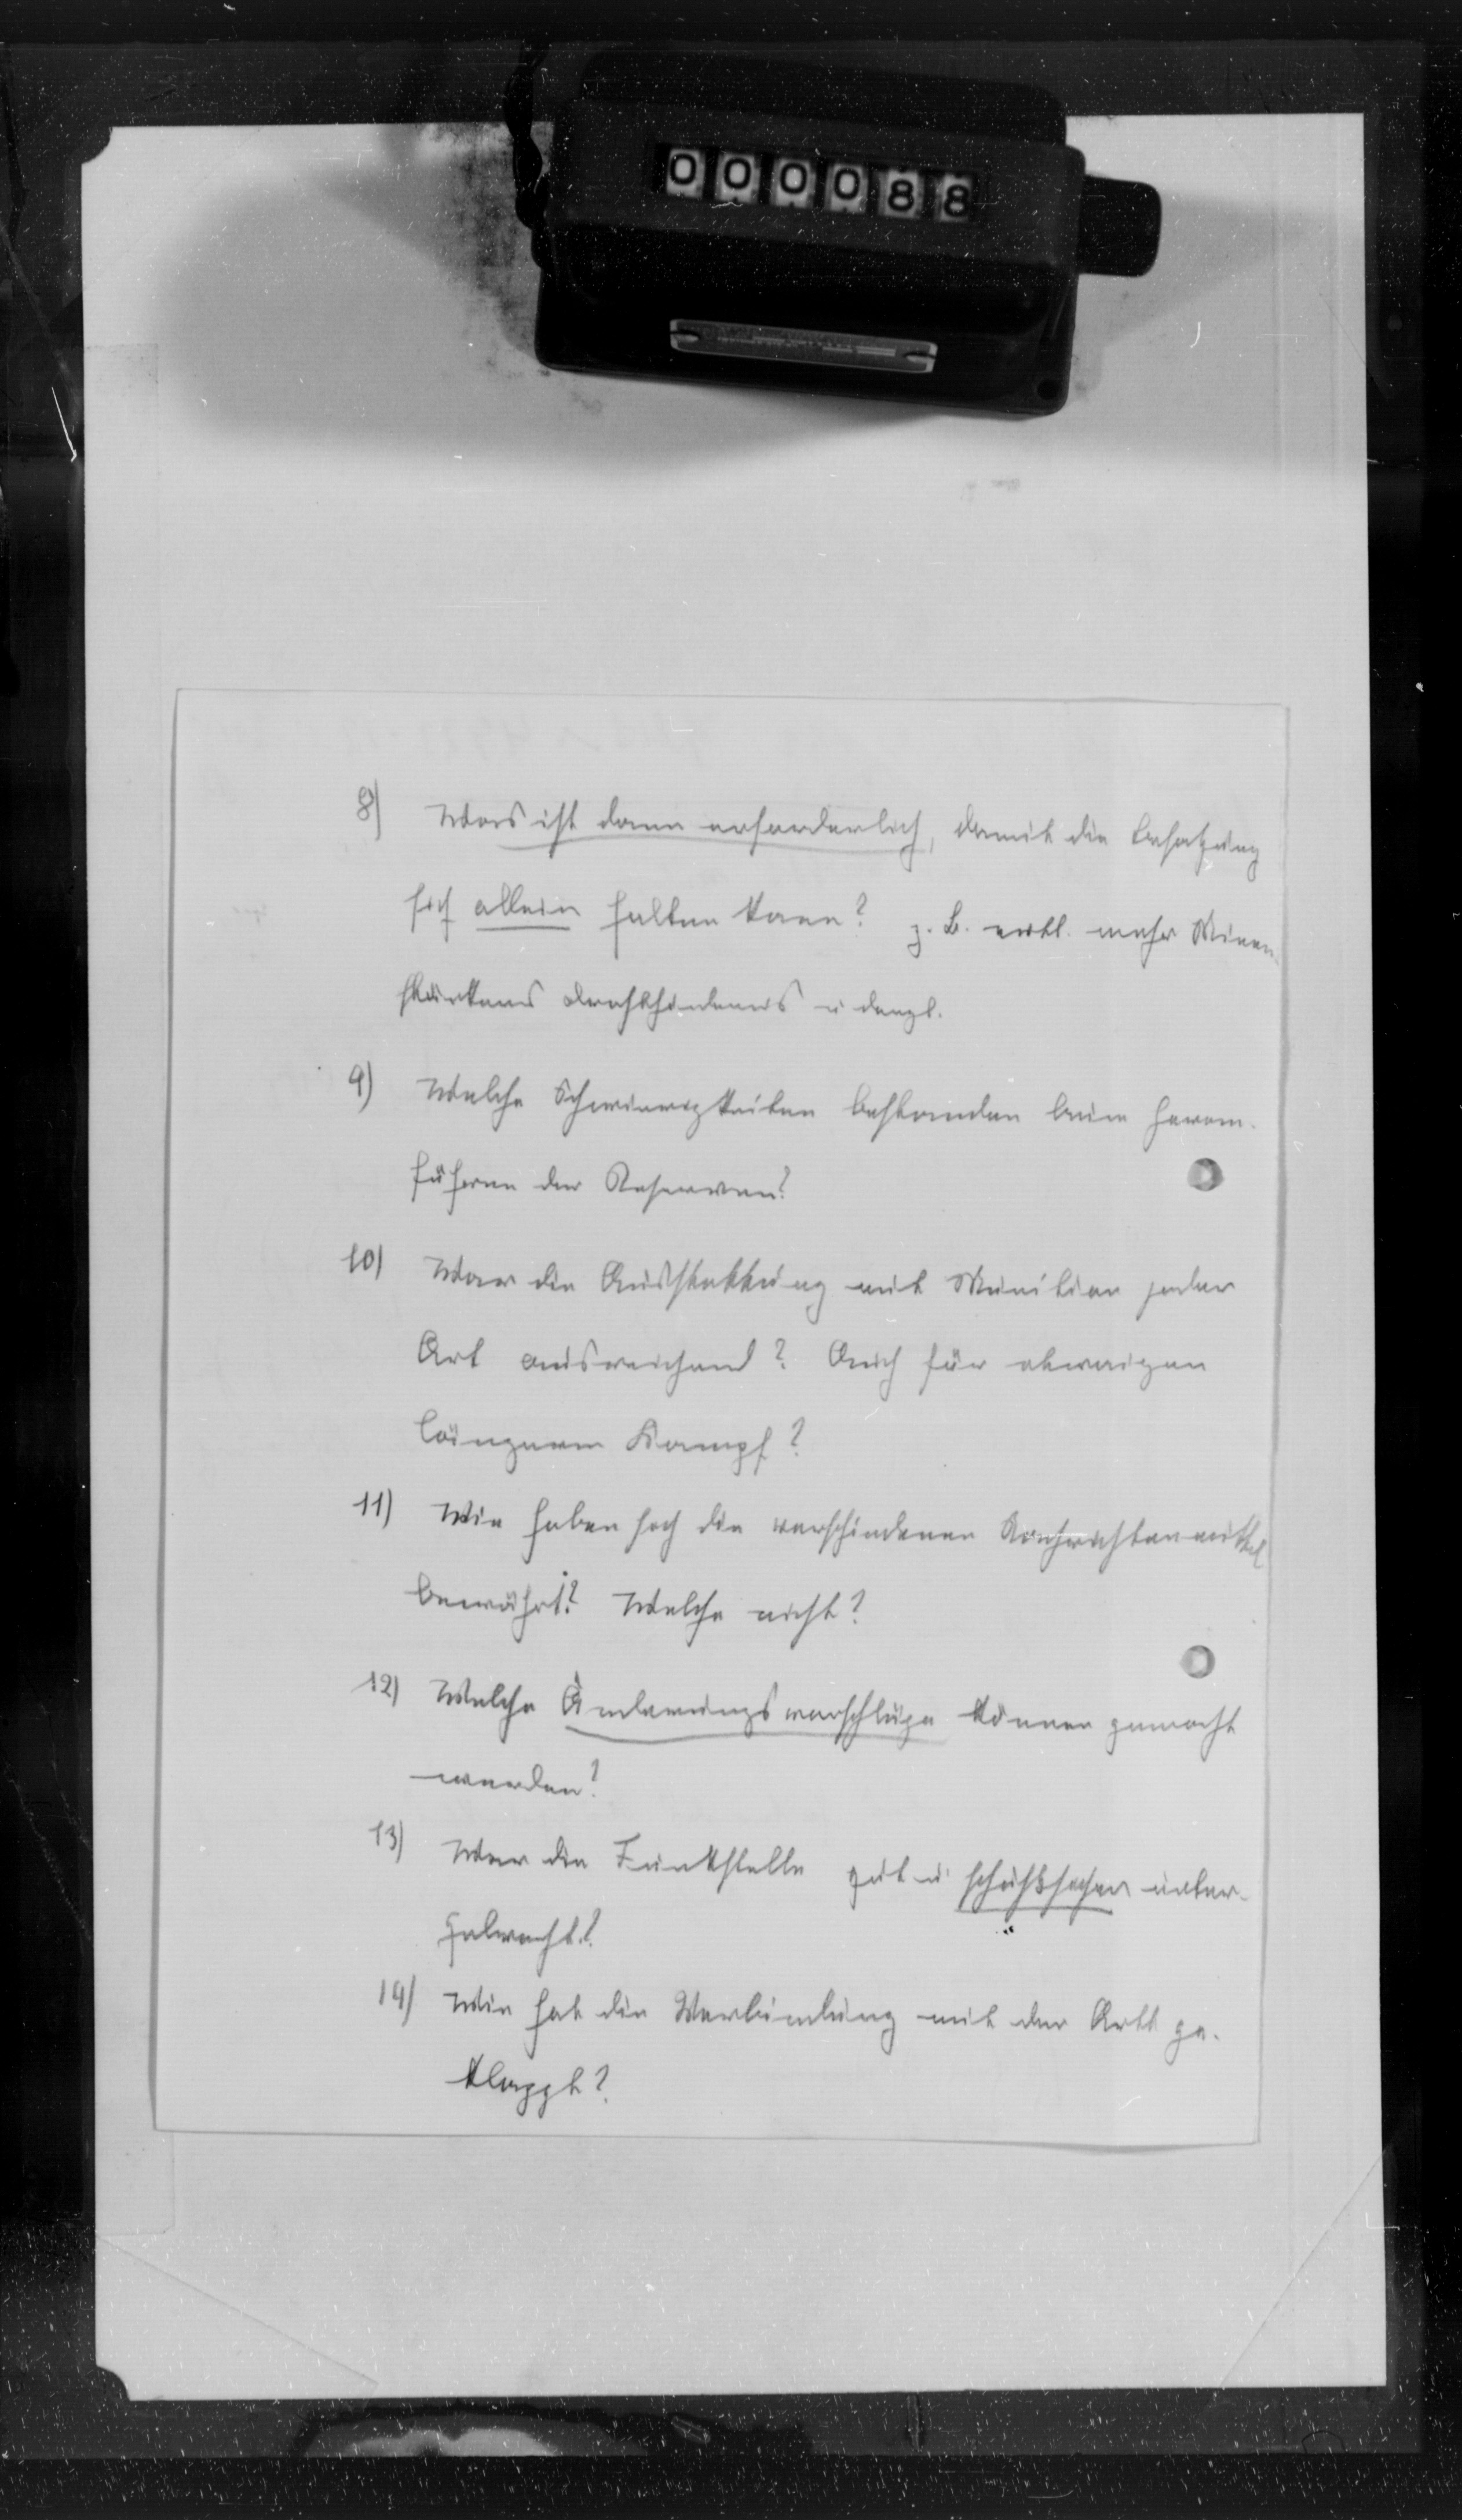 000088
8) Was ist dann erforderlich, damit die Besatzung
sich allein halten kann? z. B. evtl. mehr Minen,
stärkeres Drahthindernis u dergl.
9) Welche Schwierigkeiten bestanden beim Heran-
führen der Reserven?
10) War die Ausstattung mit Munition jeder
Art ausreichend? Auch für etwaigen
längeren Kampf?
11) Wie haben sich die verschiedenen Nachrichtenmittel
bewährt? Welche nicht?
12) Welche Änderungsvorschläge können gemacht
werden?
13) War die Funkstelle gut u schußsicher unter-
gebracht?
14) Wie hat die Verbindung mit der Artl ge-
klappt?